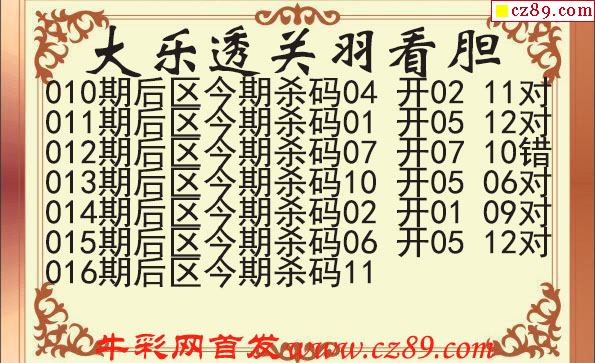 cz89.com
大乐透关羽看胆
010期后区今期杀码04 开02 11对
011期后区今期杀码01 开05 12对
012期后区今期杀码07 开07 10错
013期后区今期杀码10 开05 06对
014期后区今期杀码02 开01 09对
015期后区今期杀码06 开05 12对
016期后区今期杀码11
牛彩网首发www.cz89.com